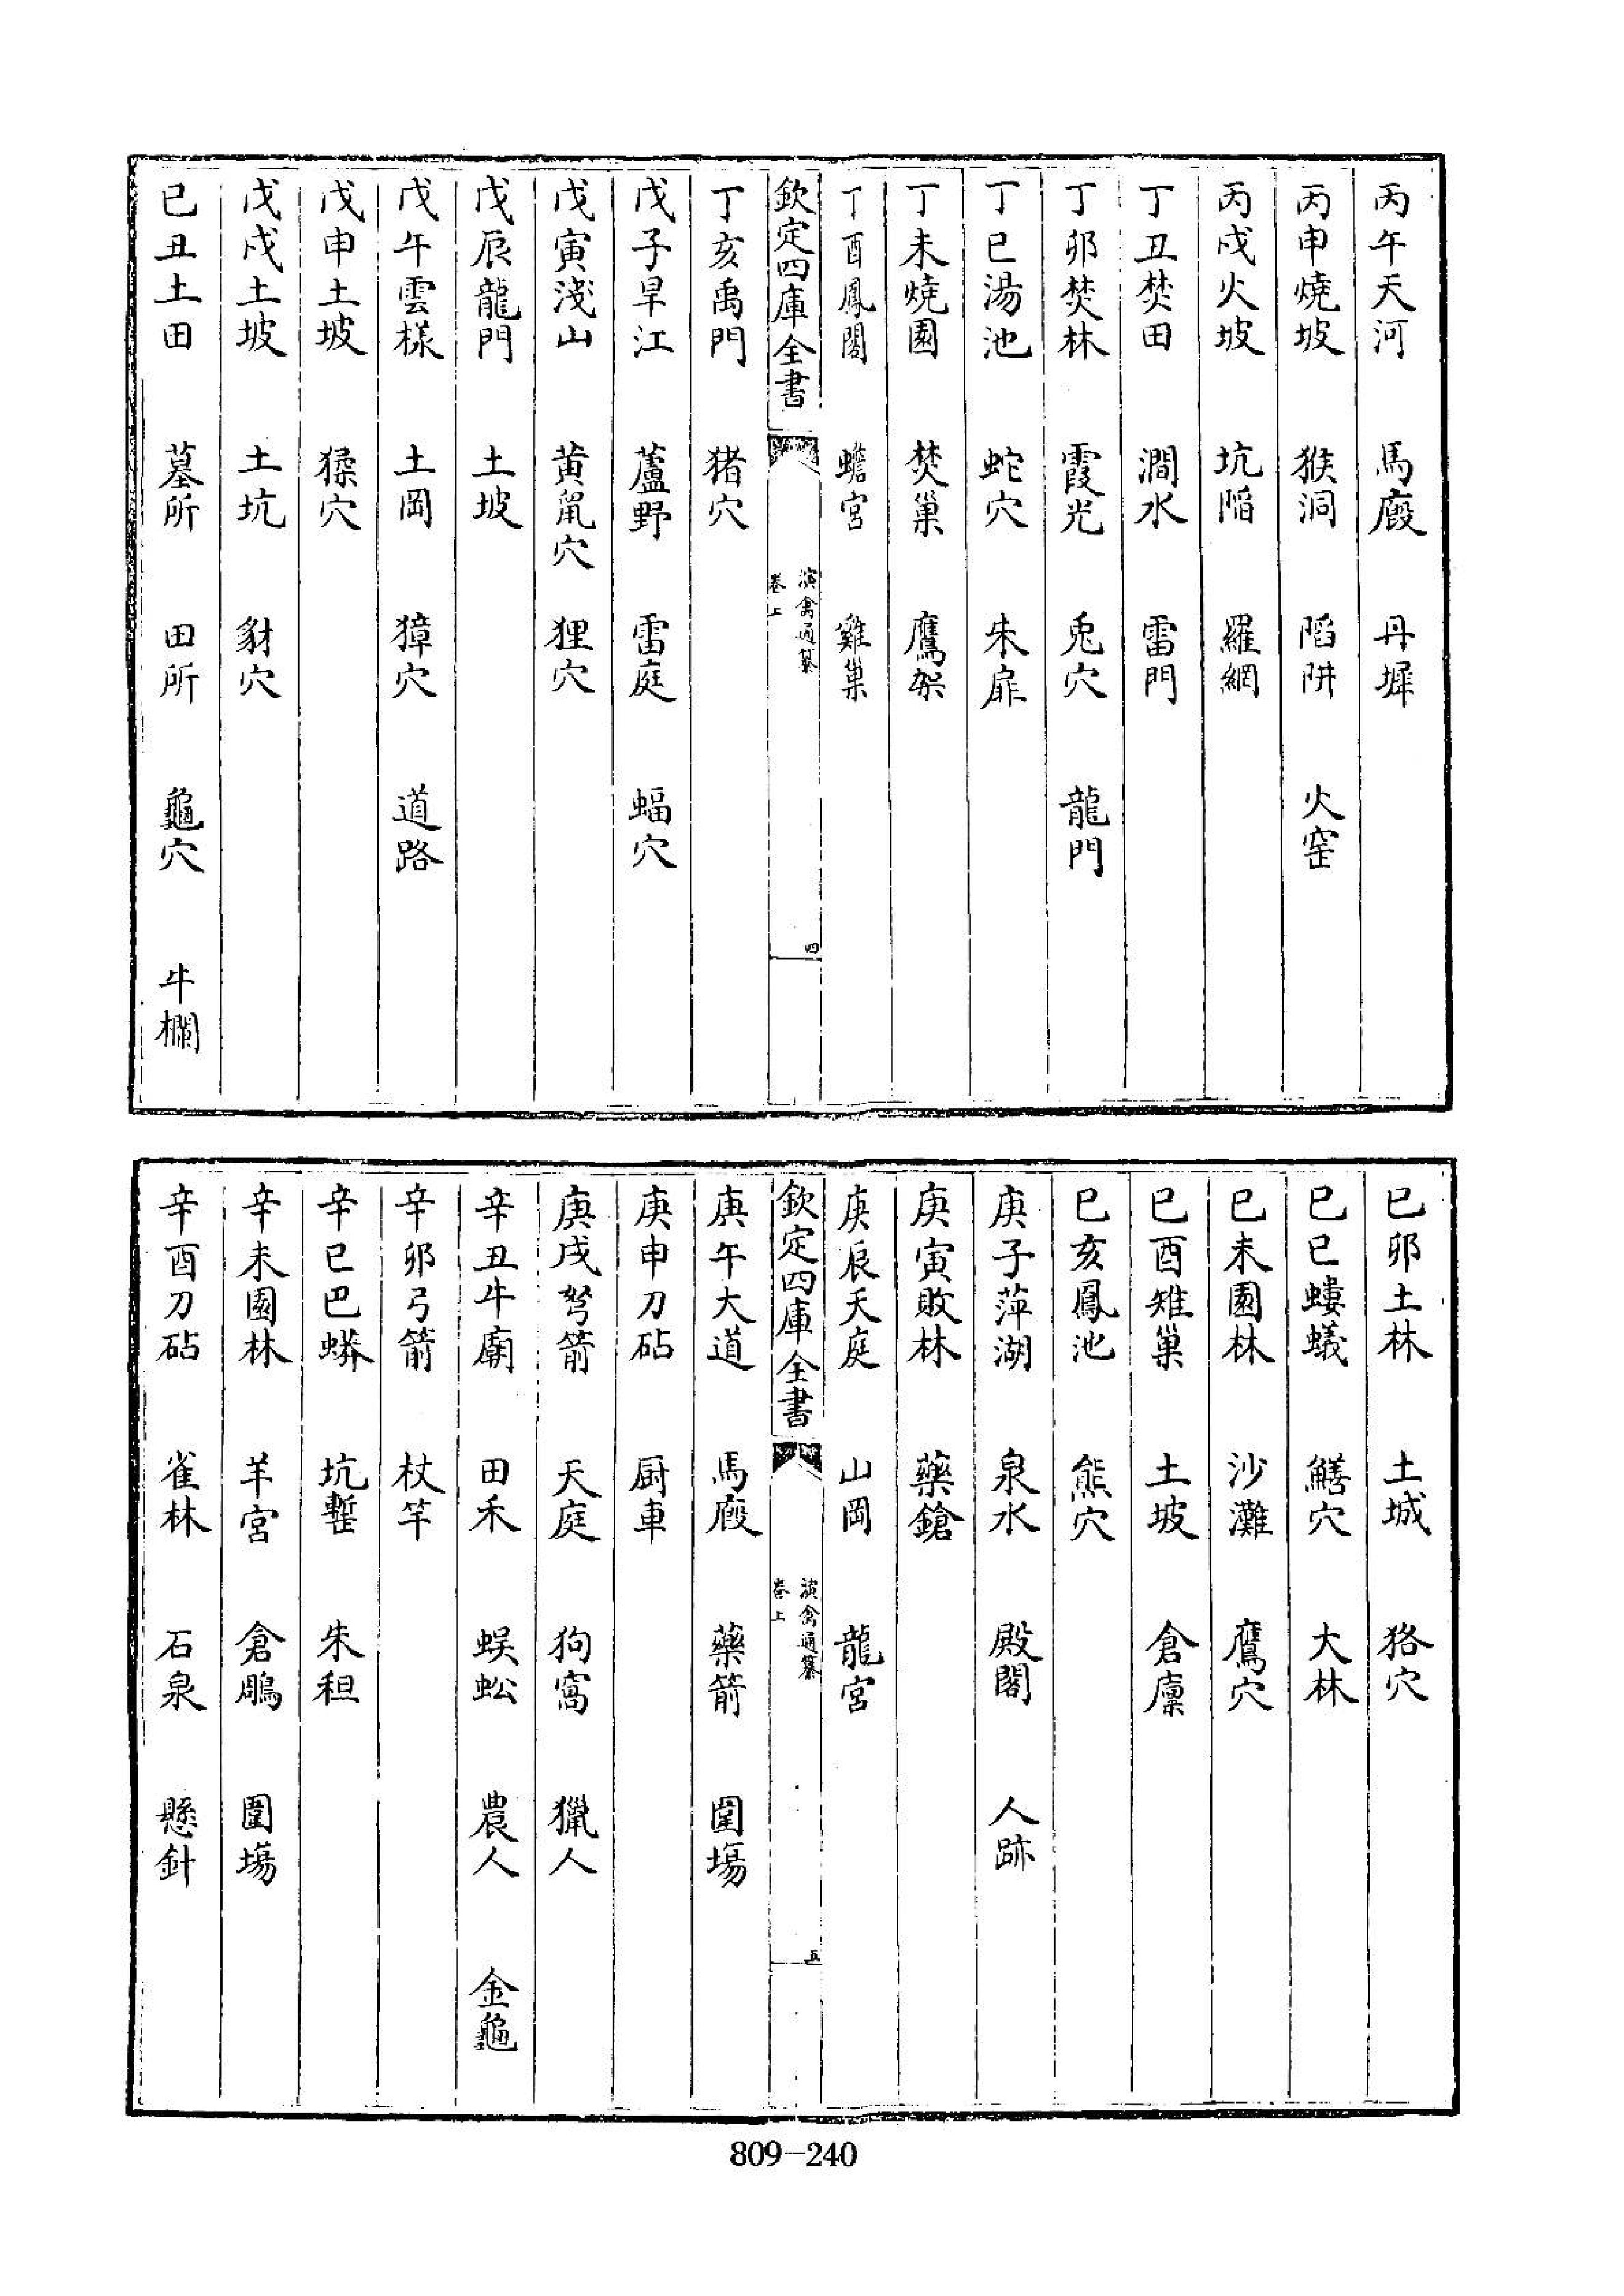 丙午天河　馬廄　丹墀
丙申燒坡　猴洞　陷阱　火窑
丙戌火坡　坑陷　羅網
丁丑焚田　澗水　雷門
丁卯焚林　霞光　兎穴　龍門
丁巳湯池　蛇穴　朱扉
丁未燒園　焚巢　鷹架
丁酉鳳閣　蟾宮　雞巢
欽定四庫全書　演禽通纂　卷上　四
丁亥禹門　猪穴
戊子旱江　蘆野　雷庭　蝠穴
戊寅淺山　黄鼠穴　狸穴
戊辰龍門　土坡
戊午雲樣　土岡　獐穴　道路
戊申土坡　猱穴
戊戌土坡　土坑　豺穴
已丑土田　墓所　田所　龜穴　牛欄
已卯土林　土城　狢穴
已巳螻蟻　鱔穴　大林
已未園林　沙灘　鷹穴
已酉雉巢　土坡　倉廩
已亥鳳池　熊穴
庚子萍湖　泉水　殿閣　人跡
庚寅敗林　藥鎗
庚辰天庭　山岡　龍宮
欽定四庫全書　演禽通纂　卷上　五
庚午大道　馬廐　藥箭　圍場
庚申刀砧　厨車
庚戌弩箭　天庭　狗窩　獵人
辛丑牛廟　田禾　蜈蚣　農人　金龜
辛卯弓箭　杖竿
辛巳巴蟒　坑塹　朱秬
辛未園林　羊宮　倉鵰　圍場
辛酉刀砧　雀林　石泉　懸針
809-240